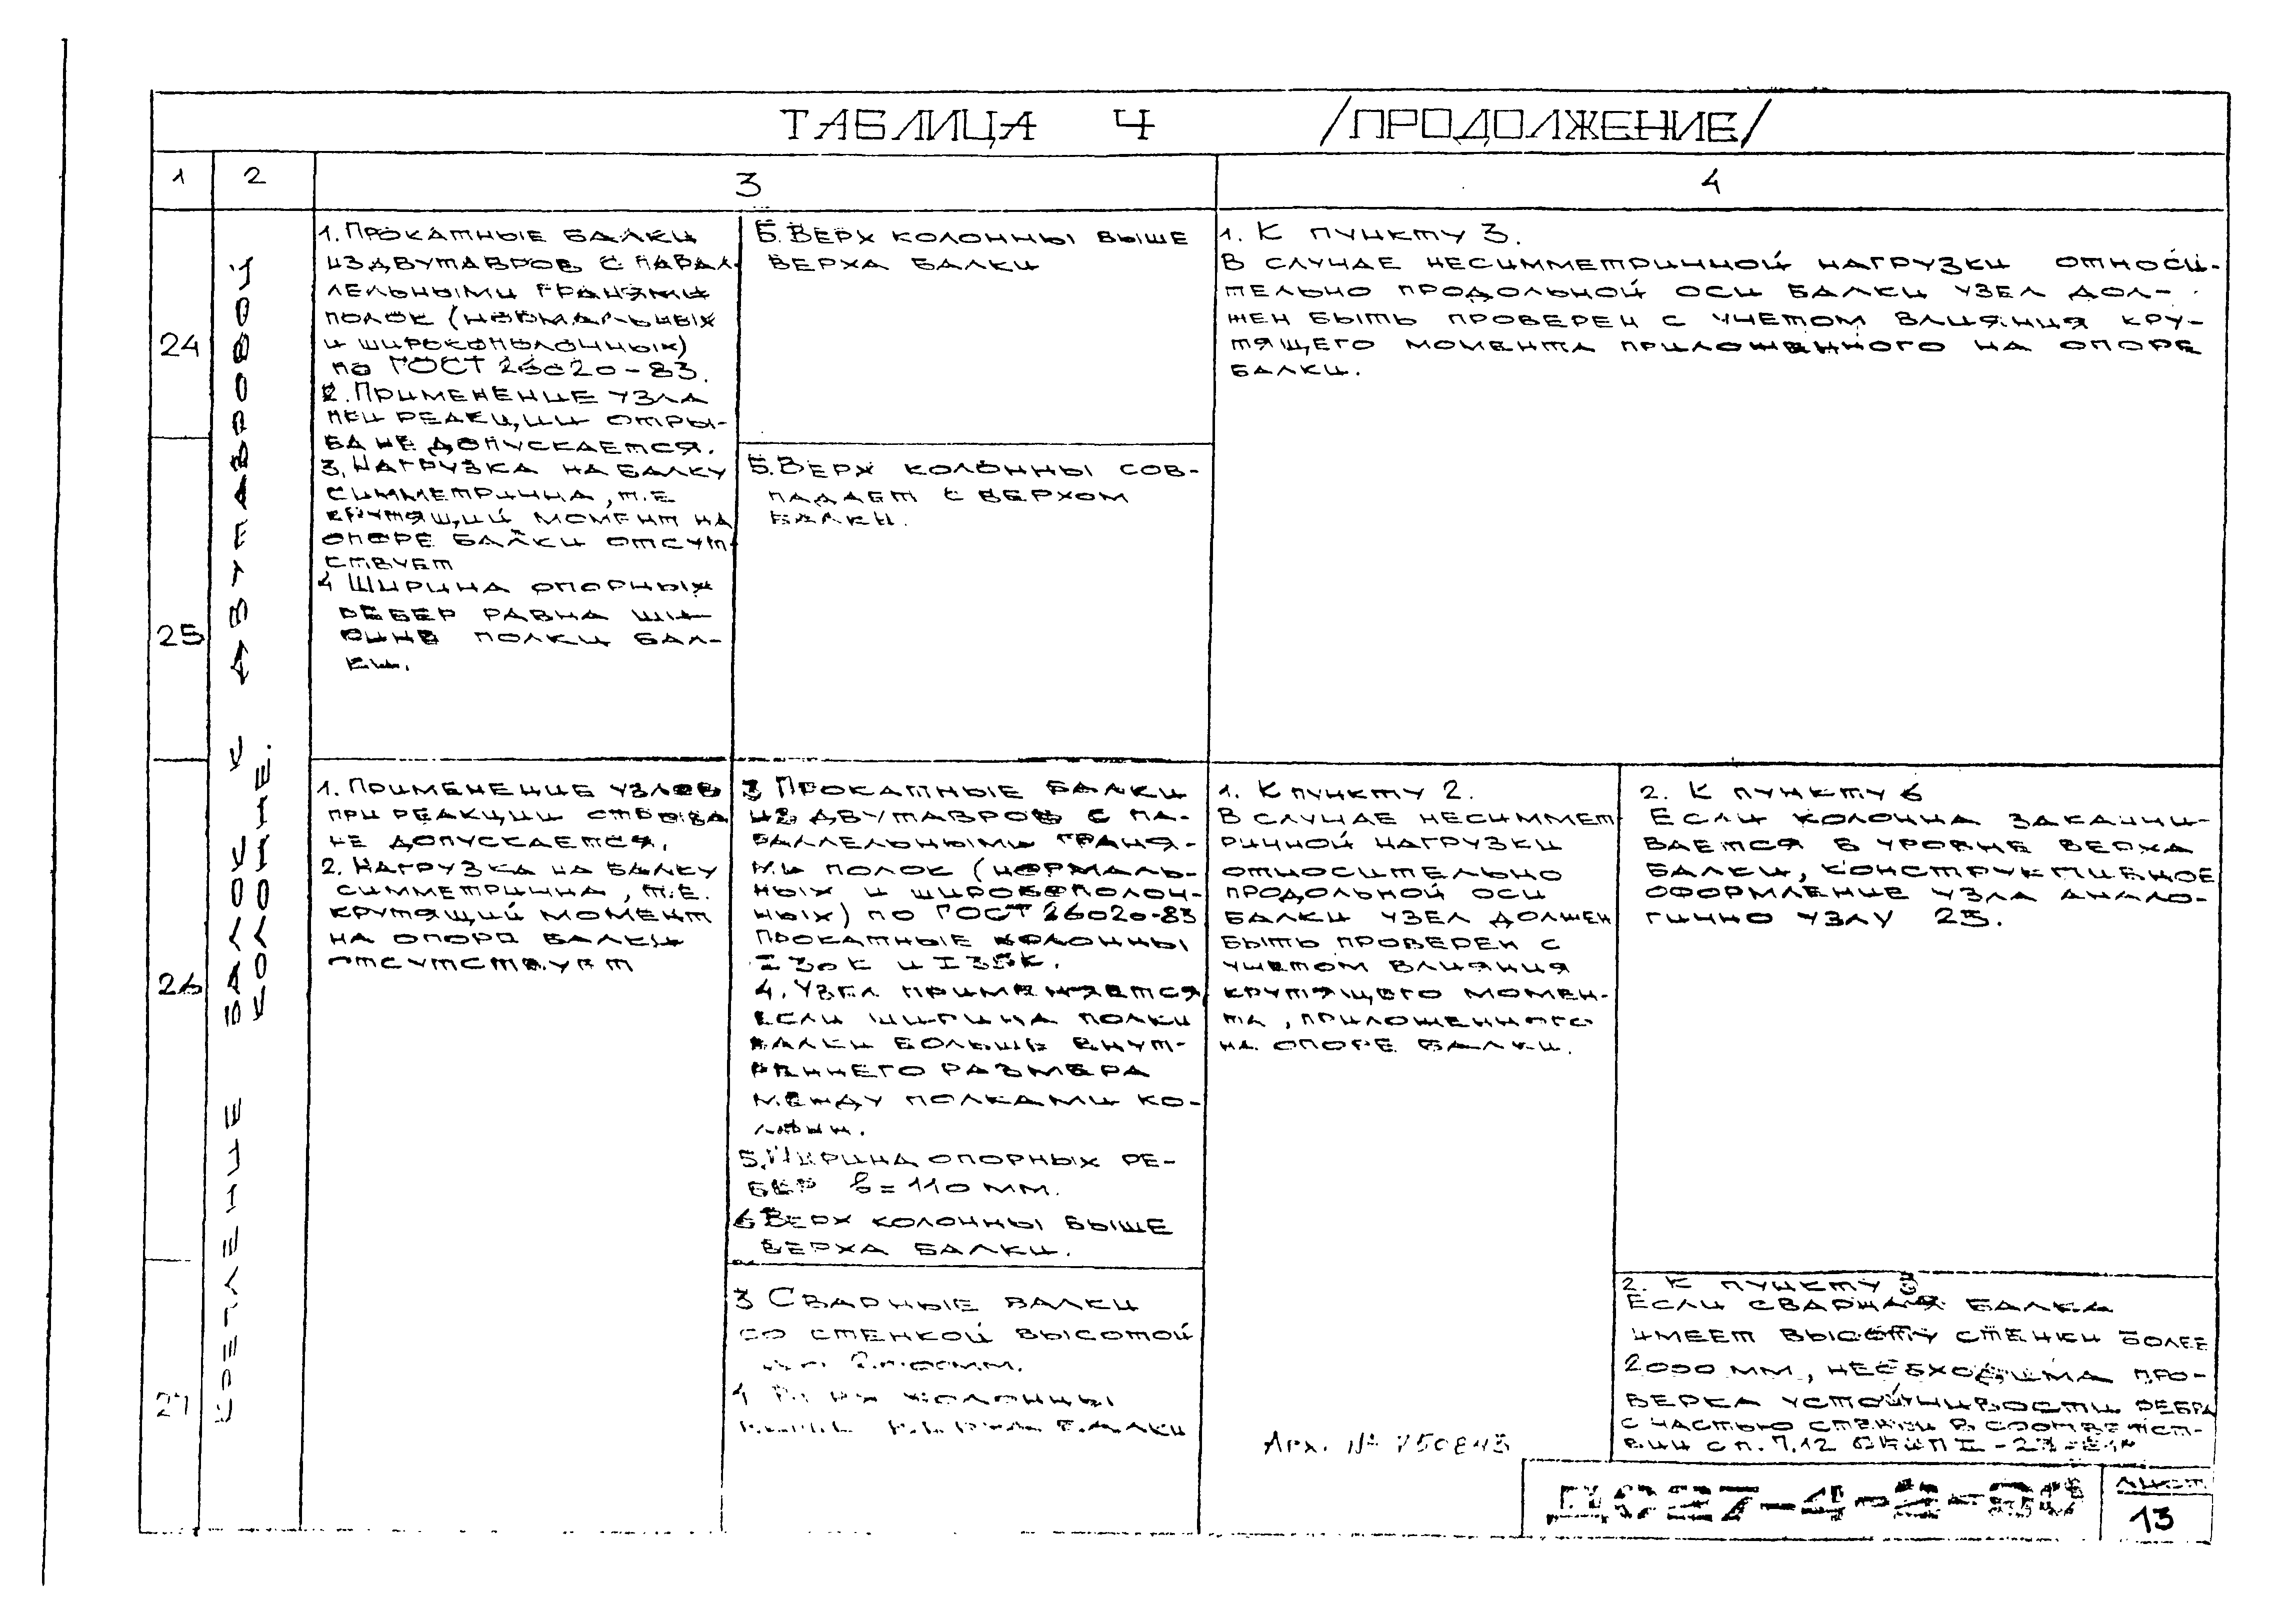 ТАБЛИЦА 4 /ПРОДОЛЖЕНИЕ/
1 2 3 4
24
25
26
27
КРЕПЛЕНИЕ БАЛОК К ДВУТАВРОВОЙ
КОЛОННЕ.
1. ПРОКАТНЫЕ БАЛКИ
ИЗ ДВУТАВРОВ С ПАРАЛ-
ЛЕЛЬНЫМИ ГРАНЯМИ
ПОЛОК (НОРМАЛЬНЫХ
И ШИРОКОПОЛОЧНЫХ)
ПО ГОСТ 26020-83.
2. ПРИМЕНЕНИЕ УЗЛА
ПРИ РЕАКЦИИ ОТРЫ-
ВА НЕ ДОПУСКАЕТСЯ.
3. НАГРУЗКА НА БАЛКУ
СИММЕТРИЧНА, Т.Е
КРУТЯЩИЙ МОМЕНТ НА
ОПОРЕ БАЛКИ ОТСУТ-
СТВУЕТ
4 ШИРИНА ОПОРНЫХ
РЕБЕР РАВНА ШИ-
РИНЕ ПОЛКИ БАЛ-
КИ.
5. ВЕРХ КОЛОННЫ ВЫШЕ
ВЕРХА БАЛКИ
5. ВЕРХ КОЛОННЫ СОВ-
ПАДАЕТ С ВЕРХОМ
БАЛКИ.
1. К ПУНКТУ 3.
В СЛУЧАЕ НЕСИММЕТРИЧНОЙ НАГРУЗКИ ОТНОСИ-
ТЕЛЬНО ПРОДОЛЬНОЙ ОСИ БАЛКИ УЗЕЛ ДОЛ-
ЖЕН БЫТЬ ПРОВЕРЕН С УЧЕТОМ ВЛИЯНИЯ КРУ-
ТЯЩЕГО МОМЕНТА ПРИЛОЖЕННОГО НА ОПОРЕ
БАЛКИ.
1. ПРИМЕНЕНИЕ УЗЛОВ
ПРИ РЕАКЦИИ ОТРЫВА
НЕ ДОПУСКАЕТСЯ.
2. НАГРУЗКА НА БАЛКУ
СИММЕТРИЧНА, Т.Е.
КРУТЯЩИЙ МОМЕНТ
НА ОПОРЕ БАЛКИ
ОТСУТСТВУЕТ
3 ПРОКАТНЫЕ БАЛКИ
ИЗ ДВУТАВРОВ С ПА-
РАЛЛЕЛЬНЫМИ ГРАНЯ-
МИ ПОЛОК (НОРМАЛЬ-
НЫХ И ШИРОКОПОЛОЧ-
НЫХ) ПО ГОСТ 26020-83
ПРОКАТНЫЕ КОЛОННЫ
I 30К И I 35К.
4. УЗЕЛ ПРИМЕНЯЕТСЯ
ЕСЛИ ШИРИНА ПОЛКИ
БАЛКИ БОЛЬШЕ ВНУТ-
РЕННЕГО РАЗМЕРА
МЕЖДУ ПОЛКАМИ КО-
ЛОНН.
5. ШИРИНА ОПОРНЫХ РЕ-
БЕР b=110 ММ.
6 ВЕРХ КОЛОННЫ ВЫШЕ
ВЕРХА БАЛКИ.
3 СВАРНЫЕ БАЛКИ
СО СТЕНКОЙ ВЫСОТОЙ
ММ.
4 ВЕРХ КОЛОННЫ
ВЫШЕ ВЕРХА БАЛКИ
1. К ПУНКТУ 2.
В СЛУЧАЕ НЕСИММЕТ
РИЧНОЙ НАГРУЗКИ
ОТНОСИТЕЛЬНО
ПРОДОЛЬНОЙ ОСИ
БАЛКИ УЗЕЛ ДОЛЖЕН
БЫТЬ ПРОВЕРЕН С
УЧЕТОМ ВЛИЯНИЯ
КРУТЯЩЕГО МОМЕН-
ТА, ПРИЛОЖЕННОГО
НА ОПОРЕ БАЛКИ.
2. К ПУНКТУ 6
ЕСЛИ КОЛОННА ЗАКАНЧИ-
ВАЕТСЯ В УРОВНЕ ВЕРХА
БАЛКИ, КОНСТРУКТИВНОЕ
ОФОРМЛЕНИЕ УЗЛА АНАЛО-
ГИЧНО УЗЛУ 25.
2. К ПУНКТУ 3
ЕСЛИ СВАРНАЯ БАЛКА
ИМЕЕТ ВЫСОТУ СТЕНКИ БОЛЕЕ
2000 ММ, НЕОБХОДИМА ПРО-
ВЕРКА УСТОЙЧИВОСТИ РЕБРА
С ЧАСТЬЮ СТЕНКИ В СООТВЕТСТ-
ВИИ С П. 7.12 СНИП II-23-81*
Арх. № 750843
ЛИСТ
13